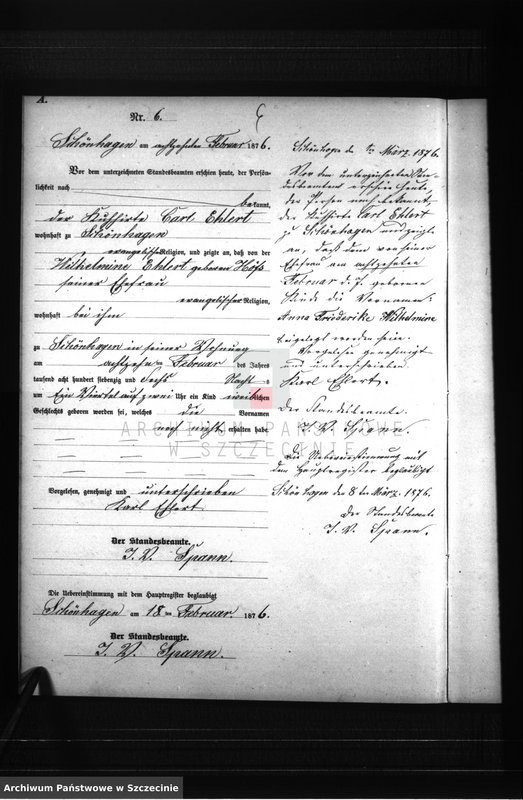 A.
Nr. 6.
Schönhagen am achtzehnten Februar 1876.
Vor dem unterzeichneten Standesbeamten erschien heute, der Persön-
lichkeit nach
bekannt,
der Kuhhirte Carl Ehlert
wohnhaft zu Schönhagen
evangelischer Religion, und zeigte an, daß von der
Wilhelmine Ehlert geborenen Höfs
seiner Ehefrau
evangelischer Religion,
wohnhaft bei ihm
zu Schönhagen in seiner Wohnung
am achtzehn ten Februar des Jahres
tausend acht hundert siebenzig und sechs Nachts
um Ein Viertel auf zwei Uhr ein Kind weiblichen
Geschlechts geboren worden sei, welches die Vornamen
noch nicht erhalten habe
Vorgelesen, genehmigt und unterschrieben
Karl Ehlert
Der Standesbeamte.
I. V. Spann.
Die Uebereinstimmung mit dem Hauptregister beglaubigt
Schönhagen am 18 ten Februar. 1876.
Der Standesbeamte.
I. V. Spann.
Schönhagen d. März 1876.
Vor dem unterzeichneten Stan-
desbeamten erschien heute,
der Person nach bekannt,
der Kuhhirte Carl Ehlert
zu Schönhagen und zeigte
an, daß dem von seiner
Ehefrau am achtzehnten
Februar d. J. geborenen
Kinde die Vornamen:
Anna Friederike Wilhelmine
beigelegt worden seien.
Vorgelesen genehmigt
und unterschrieben
Karl Ehlert.
Der Standesbeamte.
I. V. Spann.
Die Uebereinstimmung mit
dem Hauptregister beglaubigt
Schönhagen den 8 ten März. 1876.
Der Standesbeamte
I. V. Spann.
ARCHIWUM PAŃSTWOWE
W SZCZECINIE
Archiwum Państwowe w Szczecinie